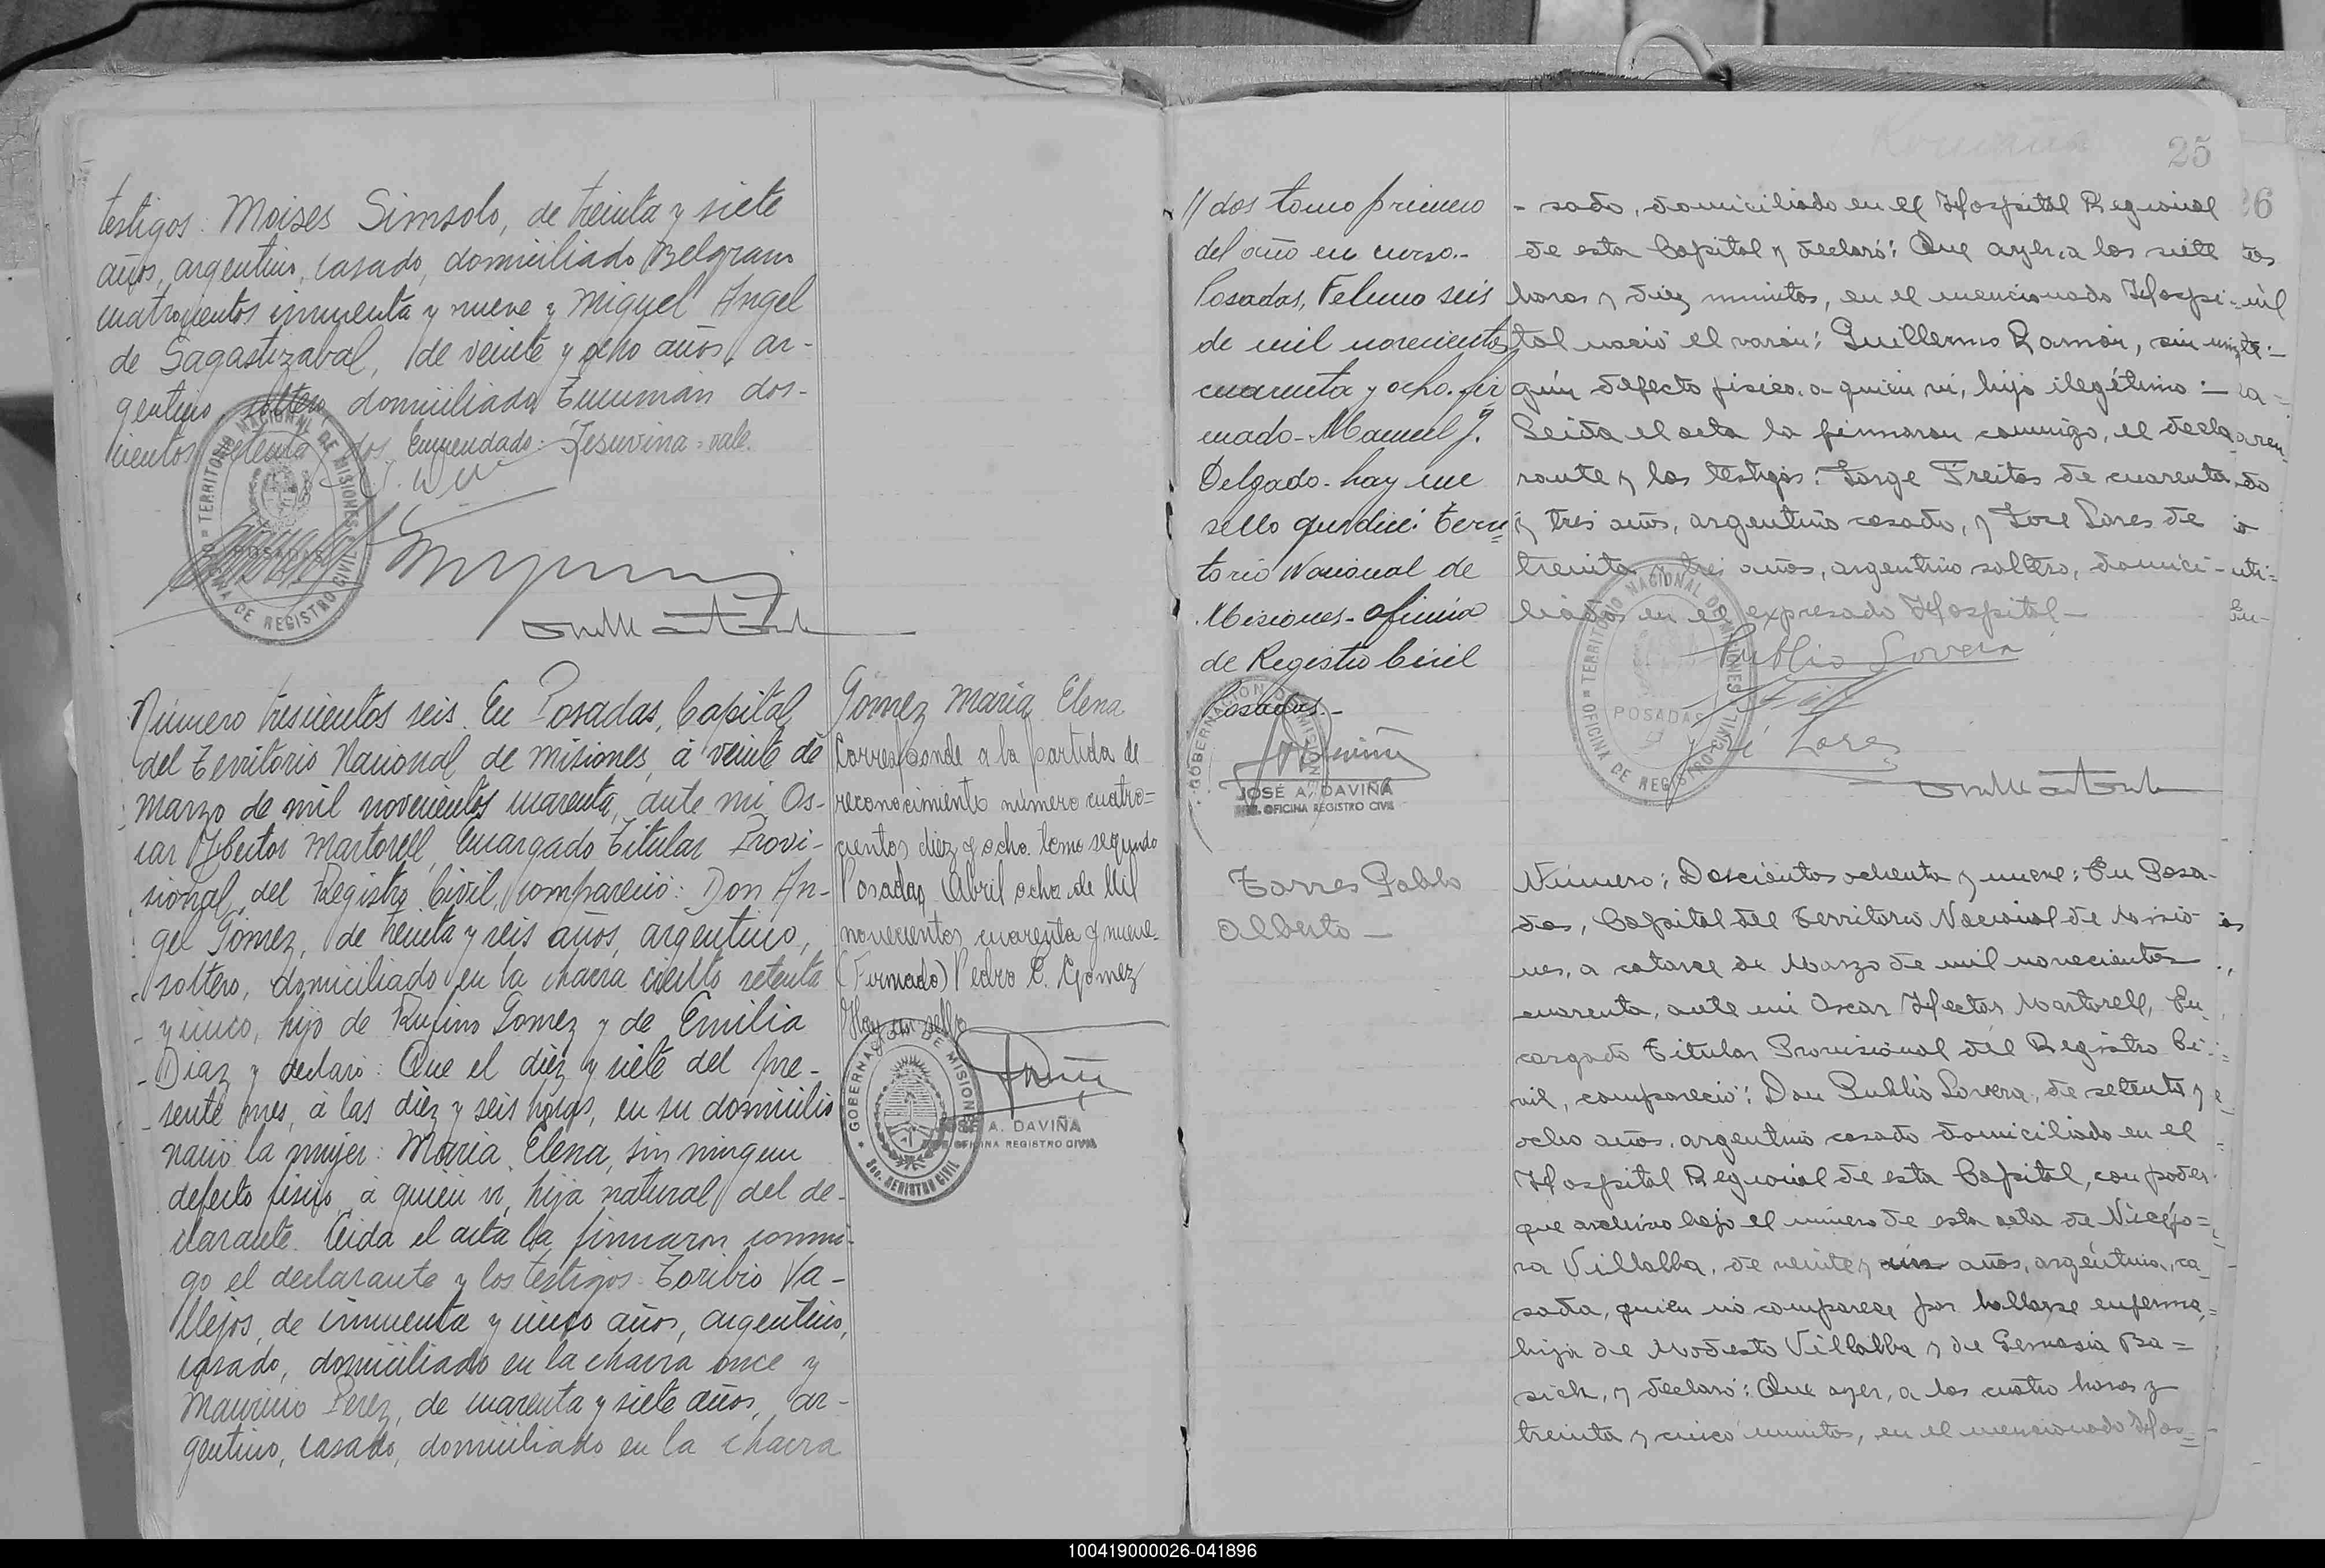 testigos: Moises Simsolo, de treinta y siete
años, argentino, casado, domiciliado Belgrano
cuatrocientos cincuenta y nueve y Miguel Angel
de Sagastizabal, de veinte y ocho años, ar-
gentino, soltero, domiciliado Tucumán dos-
cientos setenta y dos. Enmendado: Jesuvina = vale.
TERRITORIO NACIONAL DE MISIONES
POSADAS
OFICINA DE REGISTRO CIVIL
Número trescientos seis. En Posadas, Capital
del Territorio Nacional de Misiones, á veinte de
marzo de mil novecientos cuarenta, ante mi Os-
car Hector Martorell, Encargado Titular Provi-
sional, del Registro Civil, compareció: Don An-
gel Gomez, de treinta y seis años, argentino,
soltero, domiciliado en la chacra ciento setenta
y cinco, hijo de Rufino Gomez y de Emilia
Diaz y declaró: Que el diez y siete del pre-
sente mes, á las diez y seis horas, en su domicilio
nació la mujer: Maria Elena, sin ningun
defecto fisico, á quien vi, hija natural del de-
clarante. Leida el acta la firmaron conmi-
go el declarante y los testigos: Toribio Va-
llejos, de cincuenta y cinco años, argentino,
casado, domiciliado en la chacra once y
Mauricio Perez, de cuarenta y siete años, ar-
gentino, casado, domiciliado en la chacra
Gomez Maria Elena
Corresponde a la partida de
reconocimiento número cuatro=
cientos diez y ocho tomo segundo
Posadas, Abril ocho de Mil
novecientos cuarenta y nueve-
(Firmado) Pedro C. Gomez
Hay un sello
GOBERNACION DE MISIONES
Sec. REGISTRO CIVIL
JOSÉ A. DAVIÑA
OFICINA REGISTRO CIVIL
// dos tomo primero
del año en curso.-
Posadas, Febrero seis
de mil novecientos
cuarenta y ocho. fir
mado - Manuel J.
Delgado - hay un
sello que dice: Terri=
torio Nacional de
Misiones - Oficina
de Registro Civil
Posadas.-
GOBERNACION DE MISIONES
JOSÉ A. DAVIÑA
OFICINA REGISTRO CIVIL
Torres Pablo
Alberto -
25
- sado, domiciliado en el Hospital Regional
de esta Capital y declaró: Que ayer, a las siete
horas y diez minutos, en el mencionado Hospi-
tal nació el varón: Guillermo Ramón, sin nin
gún defecto fisico, a quien vi, hijo ilegítimo: -
Leida el acta la firmaron conmigo, el decla
rante y los testigos: Jorge Freitas de cuarenta
y tres años, argentino casado, y José Lares de
treinta y tres años, argentino soltero, domici-
liados en el expresado Hospital -
TERRITORIO NACIONAL DE MISIONES
POSADAS
OFICINA DE REGISTRO CIVIL
Publio Lovera
José Lares
Número: Doscientos ochenta y nueve: En Posa-
das, Capital del Territorio Nacional de Misio
nes, a catorce de Marzo de mil novecientos
cuarenta, ante mi Oscar Hector Martorell, En
cargado Titular Provisional del Registro Ci-
vil, compareció: Don Publio Lovera, de setenta y
ocho años, argentino casado domiciliado en el
Hospital Regional de esta Capital, con poder
que archivo bajo el número de esta acta de Nicéfo=
ra Villalba, de veinte y un años, argentina, ca
sada, quien no comparece por hallarse enferma,
hija de Modesto Villalba y de Gervasia Ba=
sich, y declaró: Que ayer, a las cuatro horas y
treinta y cinco minutos, en el mencionado Hos=
26
100419000026-041896